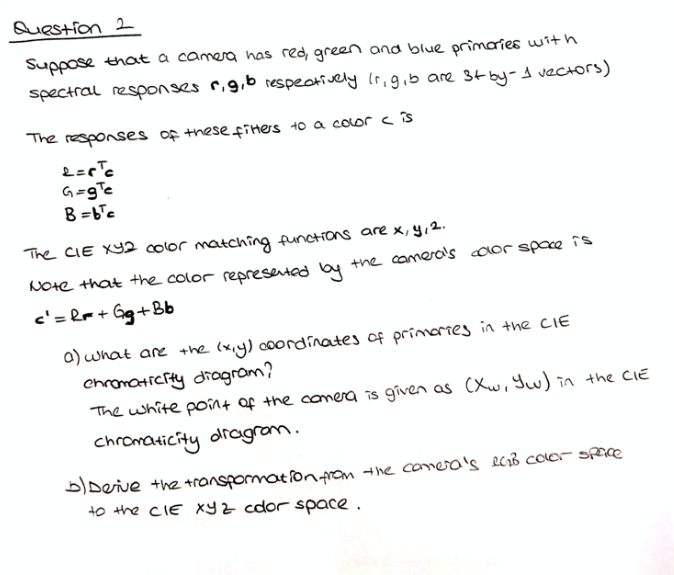 Question 2
Suppose that a camera has red, green and blue primaries with
spectral responses r,g,b respectively (r,g,b are 31-by-1 vectors)
The responses of these filters to a color c is
R=rᵀc
G=gᵀc
B=bᵀc
The CIE XYZ color matching functions are x,y,z.
Note that the color represented by the camera's color space is
c'=Rr+Gg+Bb
a) what are the (x,y) coordinates of primaries in the CIE
chromaticity diagram?
The white point of the camera is given as (Xw, Yw) in the CIE
chromaticity diagram.
b) Derive the transformation from the camera's RGB color space
to the CIE XYZ color space.